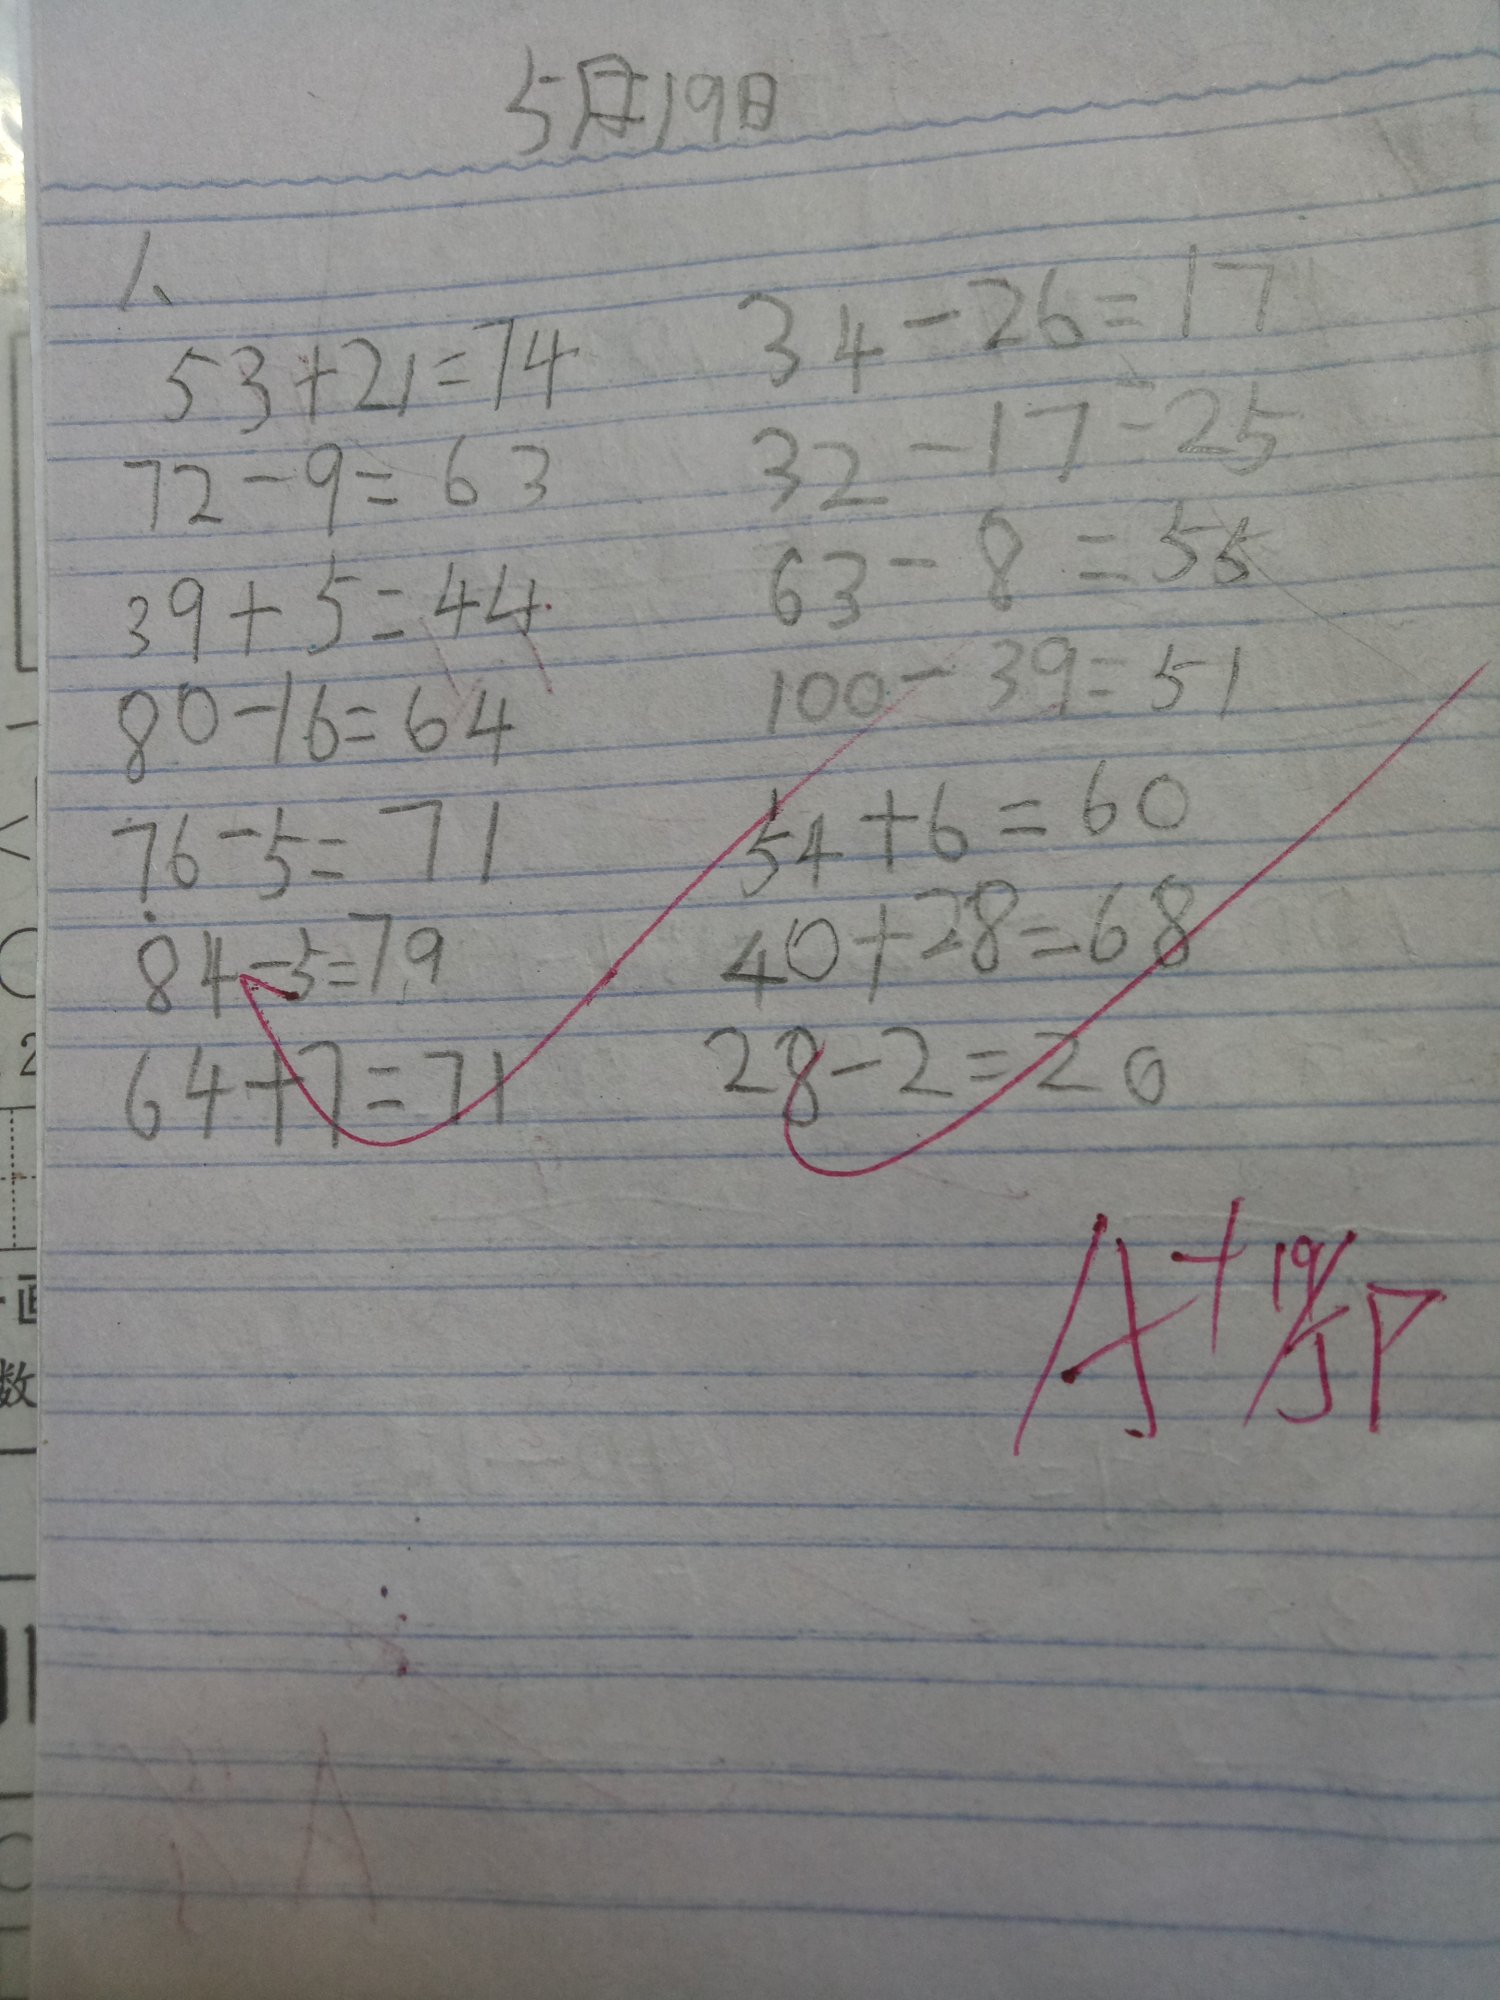 5月19日
1、
53+21=74
72-9=63
39+5=44
80-16=64
76-5=71
84-5=79
64+7=71
34-26=17
32-17=25
63-8=55
100-39=51
54+6=60
40+28=68
28-2=20
A+ 19/5
2
画
数